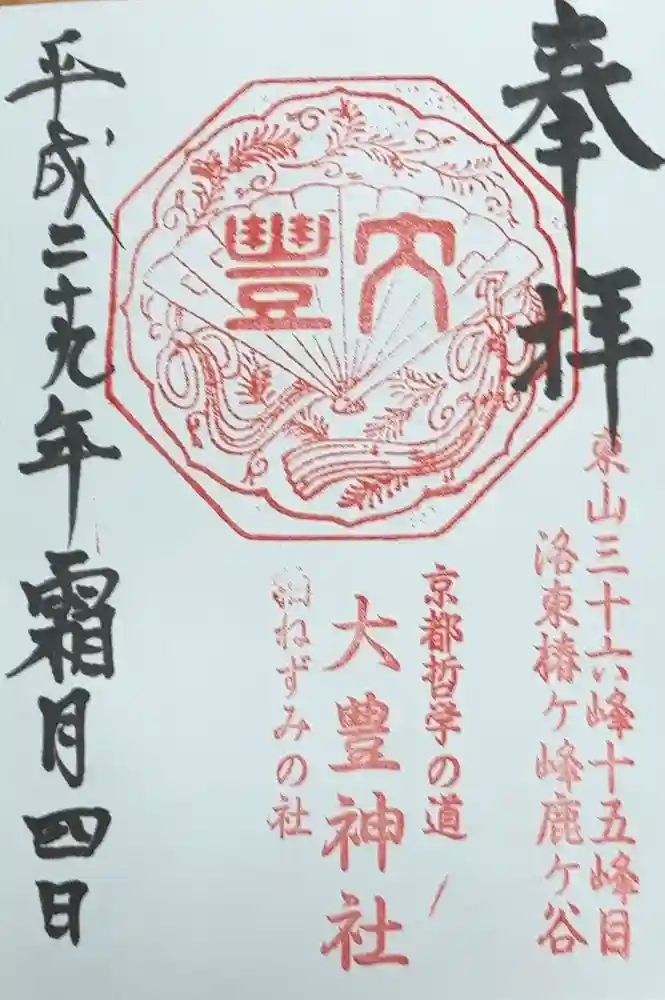 奉拝
東山三十六峰十五峰目
洛東椿ケ峰鹿ケ谷
大豊
京都哲学の道
大豊神社
ねずみの社
平成二十九年霜月四日